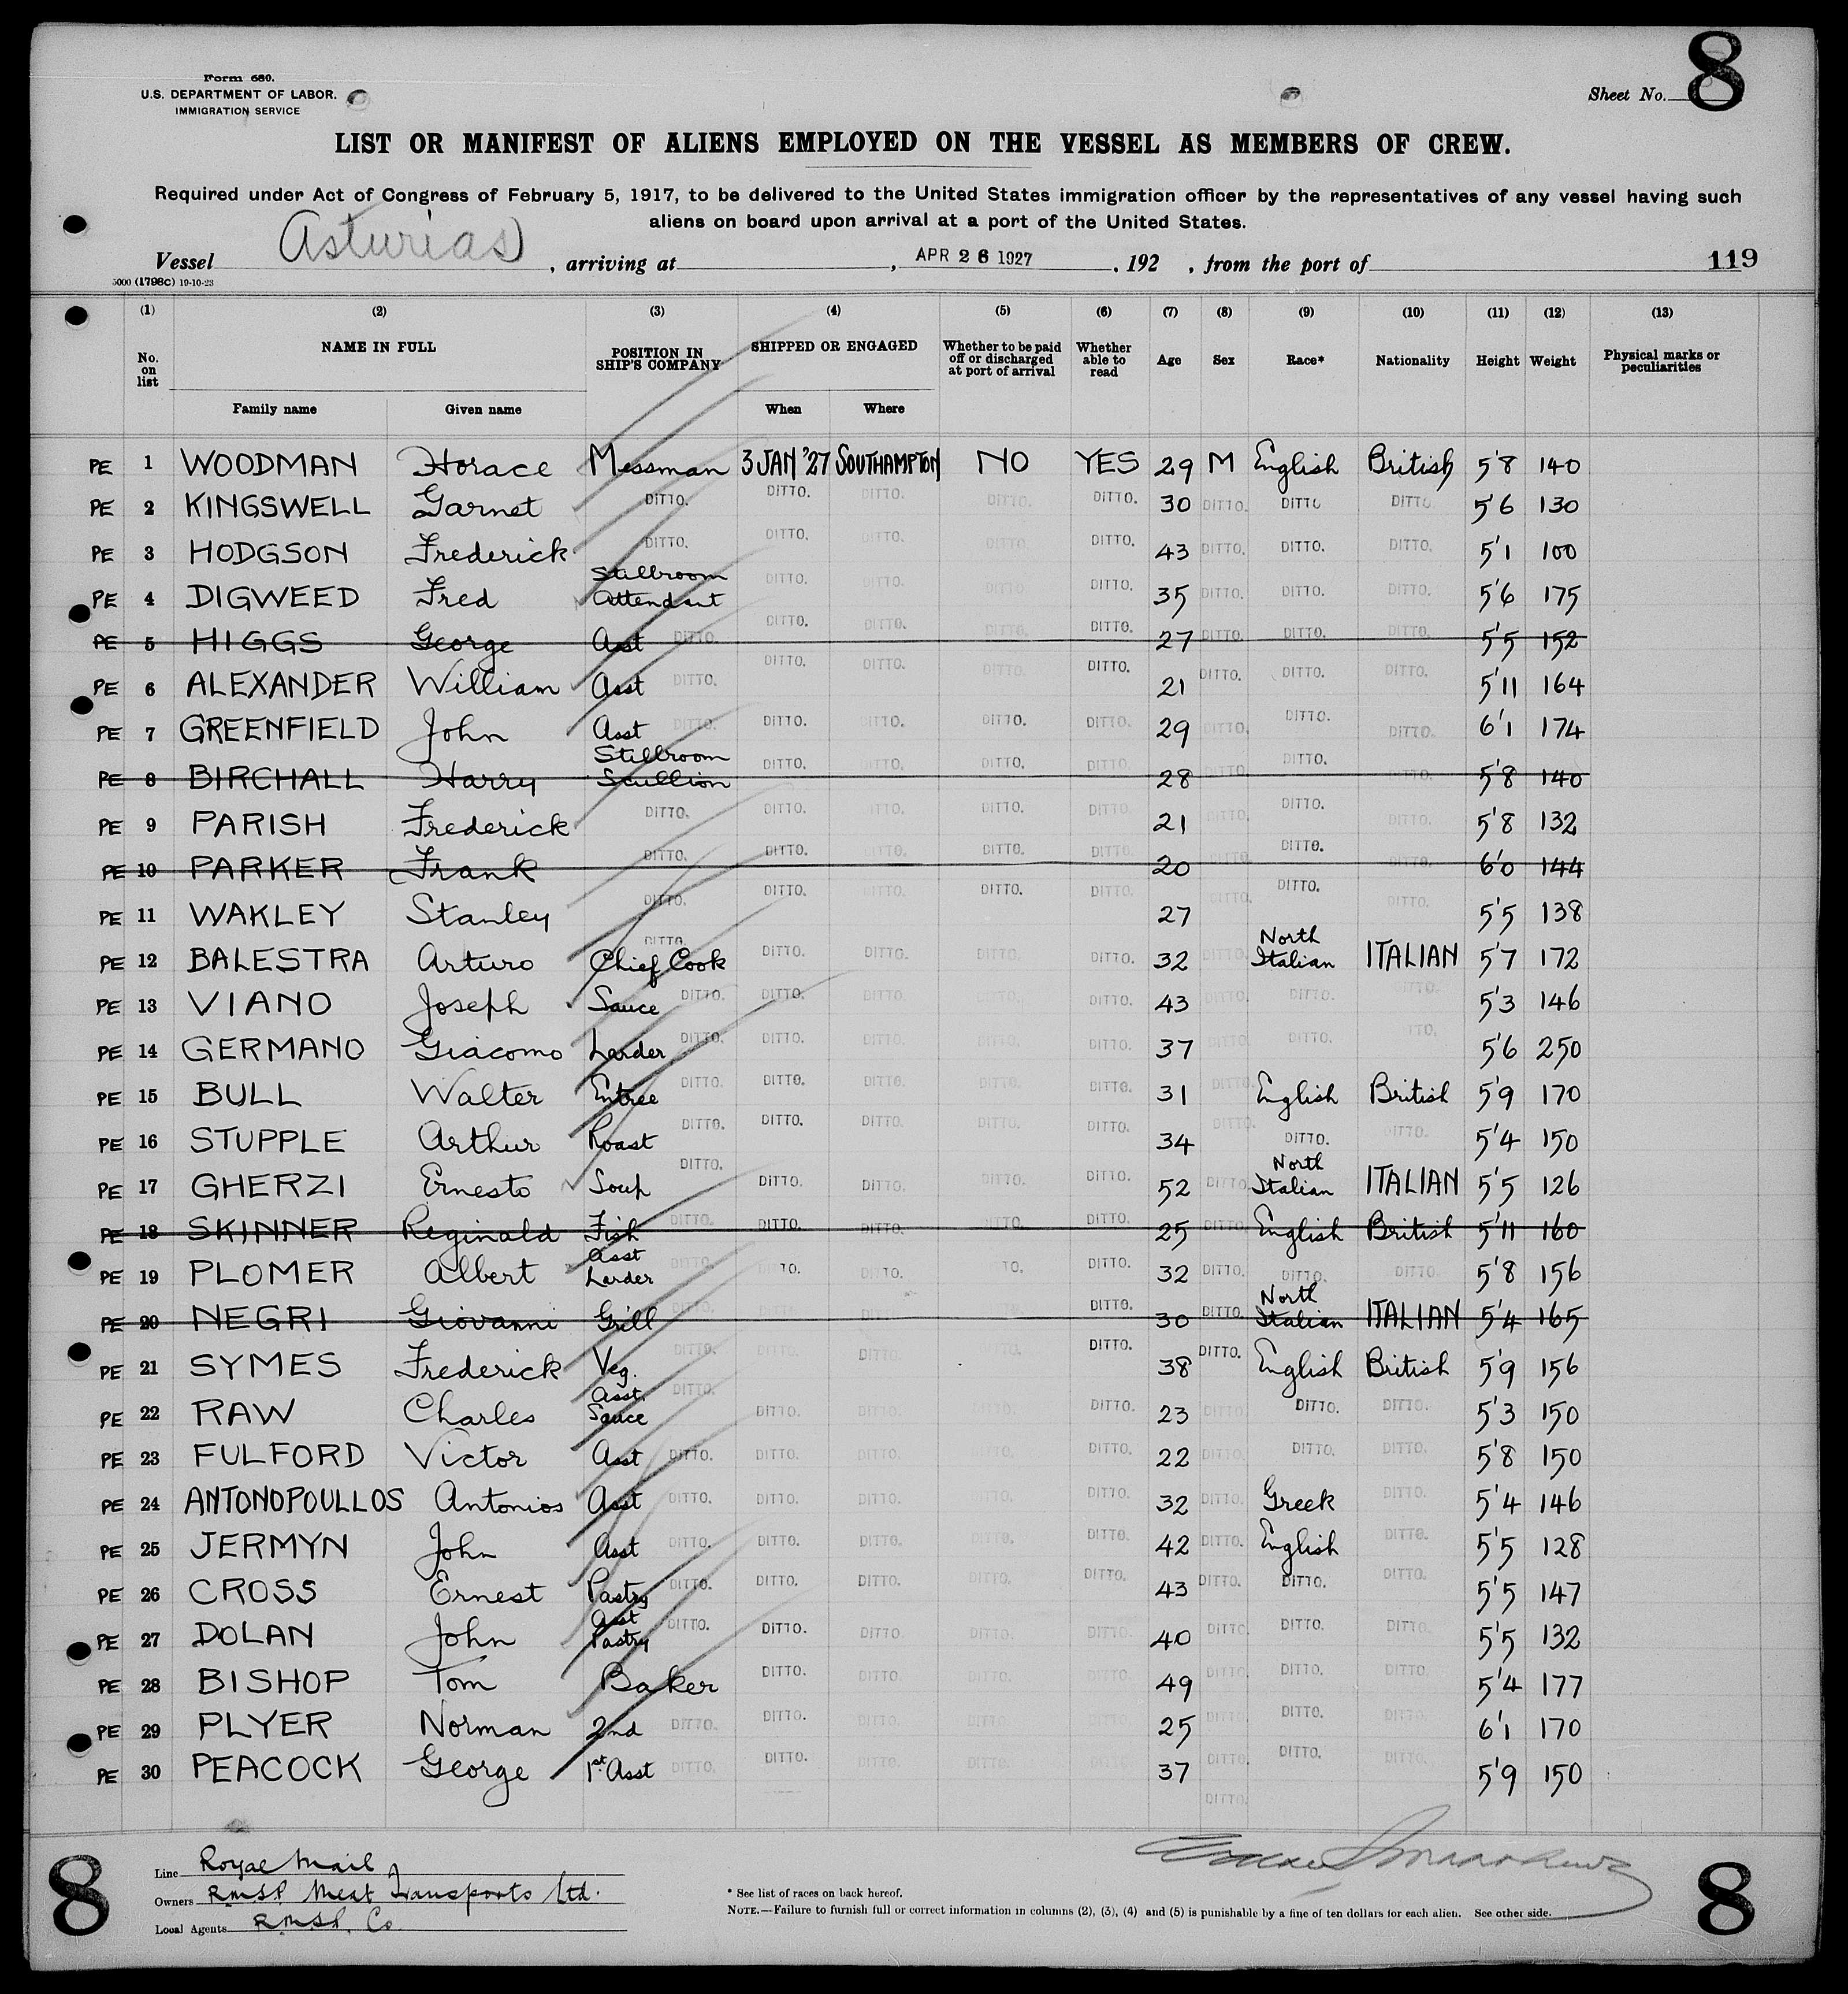 Form 680.
U.S. DEPARTMENT OF LABOR.
IMMIGRATION SERVICE
Sheet No. 8
LIST OR MANIFEST OF ALIENS EMPLOYED ON THE VESSEL AS MEMBERS OF CREW.
Required under Act of Congress of February 5, 1917, to be delivered to the United States immigration officer by the representatives of any vessel having such
aliens on board upon arrival at a port of the United States.
Vessel Asturias, arriving at , APR 26 1927, 192 , from the port of 119
5000 (1798C) 19-10-23
(1) (2) (3) (4) (5) (6) (7) (8) (9) (10) (11) (12) (13)
No. on list NAME IN FULL POSITION IN SHIP'S COMPANY SHIPPED OR ENGAGED Whether to be paid off or discharged at port of arrival Whether able to read Age Sex Race* Nationality Height Weight Physical marks or peculiarities
Family name Given name When Where
PE 1 WOODMAN Horace Messman 3 JAN '27 SOUTHAMPTON NO YES 29 M English British 5'8 140
PE 2 KINGSWELL Garnet DITTO. DITTO. DITTO. DITTO. DITTO. 30 DITTO. DITTO DITTO 5'6 130
PE 3 HODGSON Frederick DITTO. DITTO. DITTO. DITTO. DITTO. 43 DITTO. DITTO. DITTO. 5'1 100
PE 4 DIGWEED Fred Stillroom Attendant DITTO. DITTO. DITTO. DITTO. 35 DITTO. DITTO. DITTO. 5'6 175
PE 5 HIGGS George Asst DITTO. DITTO. DITTO. DITTO. DITTO. 27 DITTO. DITTO. DITTO. 5'5 152
PE 6 ALEXANDER William Asst DITTO. DITTO. DITTO. DITTO. DITTO. 21 DITTO. DITTO. DITTO. 5'11 164
PE 7 GREENFIELD John Asst DITTO. DITTO. DITTO. DITTO. DITTO. 29 DITTO. DITTO. DITTO. 6'1 174
PE 8 BIRCHALL Harry Stillroom Scullion DITTO. DITTO. DITTO. DITTO. 28 DITTO. DITTO. DITTO. 5'8 140
PE 9 PARISH Frederick DITTO. DITTO. DITTO. DITTO. DITTO. 21 DITTO. DITTO. DITTO. 5'8 132
PE 10 PARKER Frank DITTO. DITTO. DITTO. DITTO. DITTO. 20 DITTO. DITTO. DITTO. 6'0 144
PE 11 WAKLEY Stanley DITTO. DITTO. DITTO. DITTO. DITTO. 27 DITTO. DITTO. DITTO. 5'5 138
PE 12 BALESTRA Arturo DITTO. Chief Cook DITTO. DITTO. DITTO. DITTO. 32 DITTO. North Italian ITALIAN 5'7 172
PE 13 VIANO Joseph Sauce DITTO. DITTO. DITTO. DITTO. DITTO. 43 DITTO. DITTO. DITTO. 5'3 146
PE 14 GERMANO Giacomo Larder DITTO. DITTO. DITTO. DITTO. DITTO. 37 DITTO. DITTO. DITTO. 5'6 250
PE 15 BULL Walter Entree DITTO. DITTO. DITTO. DITTO. DITTO. 31 DITTO. English British 5'9 170
PE 16 STUPPLE Arthur Roast DITTO. DITTO. DITTO. DITTO. DITTO. 34 DITTO. DITTO. DITTO. 5'4 150
PE 17 GHERZI Ernesto Soup DITTO. DITTO. DITTO. DITTO. DITTO. 52 DITTO. North Italian ITALIAN 5'5 126
PE 18 SKINNER Reginald Fish DITTO. DITTO. DITTO. DITTO. DITTO. 25 DITTO. English British 5'11 160
PE 19 PLOMER Albert Asst Larder DITTO. DITTO. DITTO. DITTO. DITTO. 32 DITTO. DITTO. DITTO. 5'8 156
PE 20 NEGRI Giovanni Grill DITTO. DITTO. DITTO. DITTO. DITTO. 30 DITTO. North Italian ITALIAN 5'4 165
PE 21 SYMES Frederick Veg. DITTO. DITTO. DITTO. DITTO. DITTO. 38 DITTO. English British 5'9 156
PE 22 RAW Charles Asst. Sauce DITTO. DITTO. DITTO. DITTO. DITTO. 23 DITTO. DITTO. DITTO. 5'3 150
PE 23 FULFORD Victor Asst DITTO. DITTO. DITTO. DITTO. DITTO. 22 DITTO. DITTO. DITTO. 5'8 150
PE 24 ANTONOPOULLOS Antonios Asst DITTO. DITTO. DITTO. DITTO. DITTO. 32 DITTO. Greek DITTO. 5'4 146
PE 25 JERMYN John Asst DITTO. DITTO. DITTO. DITTO. DITTO. 42 DITTO. English DITTO. 5'5 128
PE 26 CROSS Ernest Pastry DITTO. DITTO. DITTO. DITTO. DITTO. 43 DITTO. DITTO. DITTO. 5'5 147
PE 27 DOLAN John Asst Pastry DITTO. DITTO. DITTO. DITTO. DITTO. 40 DITTO. DITTO. DITTO. 5'5 132
PE 28 BISHOP Tom Baker DITTO. DITTO. DITTO. DITTO. 49 DITTO. DITTO. DITTO. 5'4 177
PE 29 PLYER Norman 2nd DITTO. DITTO. DITTO. DITTO. DITTO. 25 DITTO. DITTO. DITTO. 6'1 170
PE 30 PEACOCK George 1st Asst DITTO. DITTO. DITTO. DITTO. DITTO. 37 DITTO. DITTO. DITTO. 5'9 150
DITTO.
8 8
Line Royal Mail
Owners R.M.S.P. Meat Transports Ltd.
Local Agents R.M.S.P. Co
* See list of races on back hereof.
NOTE.—Failure to furnish full or correct information in columns (2), (3), (4) and (5) is punishable by a fine of ten dollars for each alien. See other side.